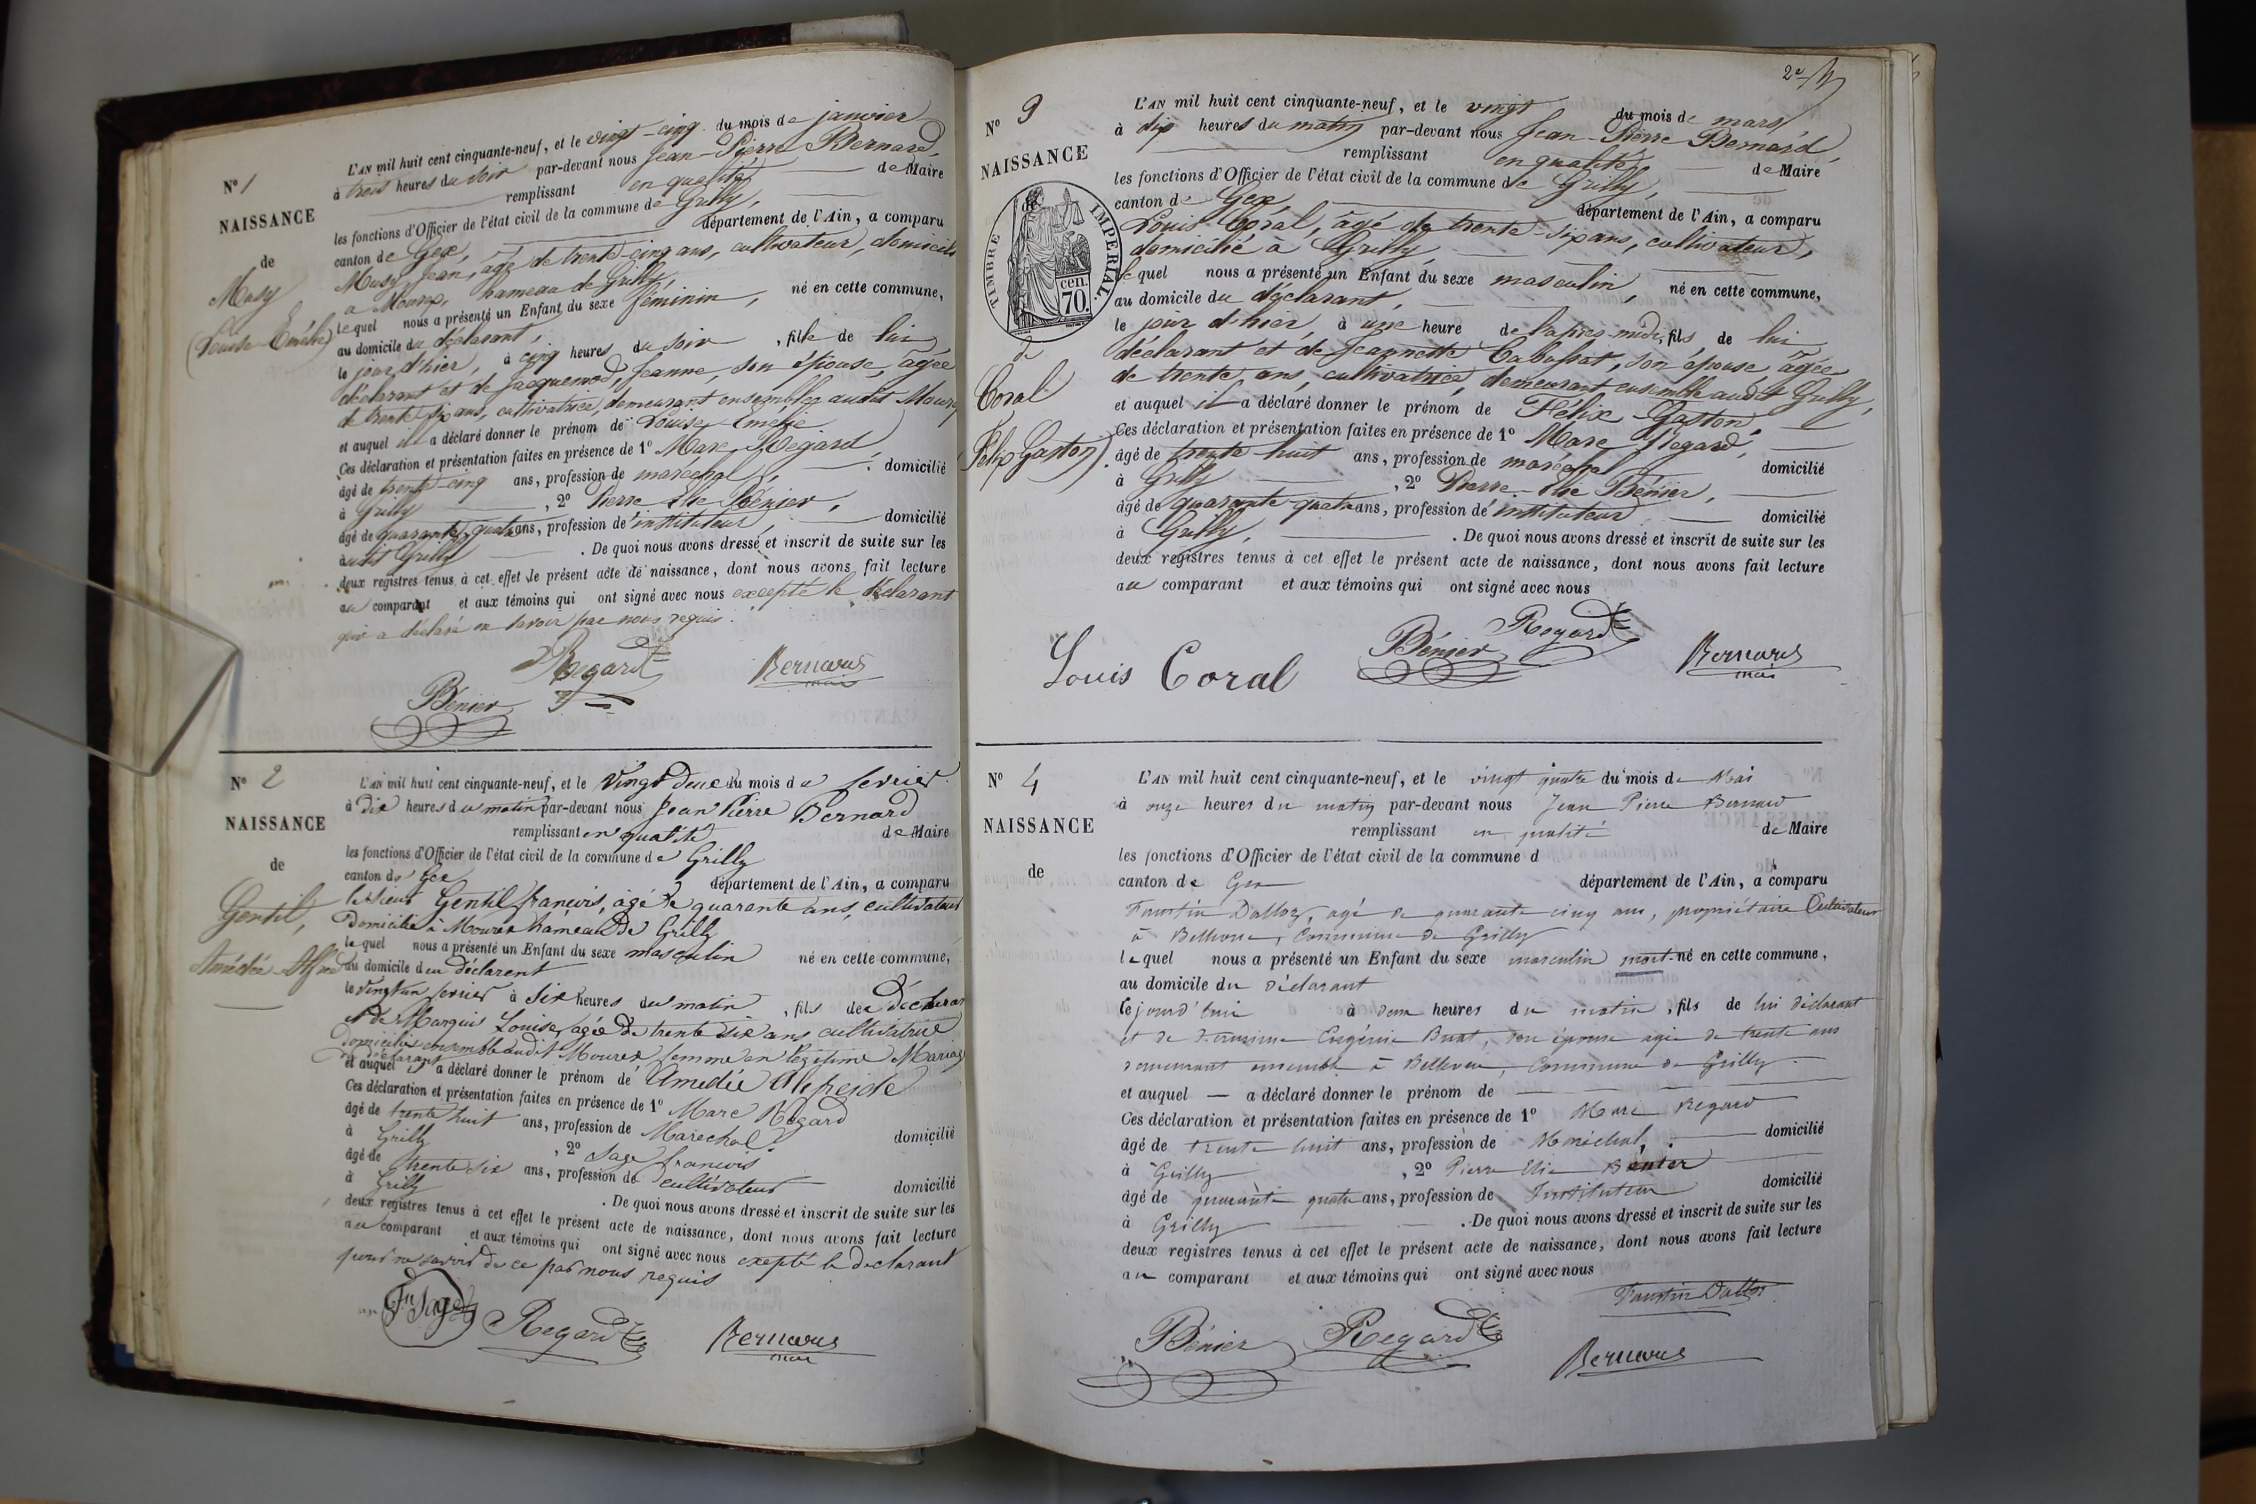 N° 1
NAISSANCE
de
Musy
(Louise Emélie)
L'AN mil huit cent cinquante-neuf, et le vingt-cinq du mois de janvier
à trois heures du soir par-devant nous Jean-Pierre Bernard,
remplissant en qualité de Maire
les fonctions d'Officier de l'état civil de la commune de Grilly,
canton de Gex, département de l'Ain, a comparu
Musy Jean, âgé de trente-cinq ans, cultivateur, domicilié
à Mourex, hameau de Grilly,
lequel nous a présenté un Enfant du sexe féminin, né en cette commune,
au domicile du déclarant,
le jour d'hier, à cinq heures du soir, fille de lui
déclarant et de Jacquemod, Jeanne, son épouse, âgée
de trente six ans, cultivatrice, demeurant ensemble audit Mourex
et auquel il a déclaré donner le prénom de Louise Emélie
Ces déclaration et présentation faites en présence de 1° Marc Régard,
âgé de trente-cinq ans, profession de maréchal, domicilié
à Grilly, 2° Pierre Elie Bénier,
âgé de quarante quatre ans, profession de instituteur, domicilié
audit Grilly. De quoi nous avons dressé et inscrit de suite sur les
deux registres tenus à cet effet le présent acte de naissance, dont nous avons fait lecture
au comparant et aux témoins qui ont signé avec nous excepté le déclarant
qui a déclaré ne savoir par nous requis.
Regard
Bernard
maire
Bénier
N° 2
NAISSANCE
de
Gentil,
Amédée Alfred
L'AN mil huit cent cinquante-neuf, et le vingt deux du mois de fevrier
à dix heures du matin par-devant nous Jean Pierre Bernard
remplissant en qualité de Maire
les fonctions d'Officier de l'état civil de la commune de Grilly
canton de Gex département de l'Ain, a comparu
le sieur Gentil francois, âgé de quarante ans, cultivateur
Domicilié à Mourex hameau de Grilly
lequel nous a présenté un Enfant du sexe masculin né en cette commune,
au domicile du déclarent
le vingt un fevrier à six heures du matin, fils de Déclarant
et de Marquis Louise agée de trente six ans cultivatrice
Domiciliés ensemble audit Mourex femme en légitime Mariage
du déclarant
et auquel il a déclaré donner le prénom de Amedée Alfreide
Ces déclaration et présentation faites en présence de 1° Marc Régard
âgé de trente huit ans, profession de Marechal domicilié
à Grilly, 2° Sage francois
âgé de trente six ans, profession de cultivateur domicilié
à Grilly. De quoi nous avons dressé et inscrit de suite sur les
deux registres tenus à cet effet le présent acte de naissance, dont nous avons fait lecture
au comparant et aux témoins qui ont signé avec nous exepté le declarant
pour ne savoir de ce par nous requis
Sage
Regard
Bernard
maire
2e
N° 3
NAISSANCE
TIMBRE IMPÉRIAL.
70 cen.
de
Coral
Félix Gaston).
L'AN mil huit cent cinquante-neuf, et le vingt du mois de mars,
à dix heures du matin par-devant nous Jean-Pierre Bernard,
remplissant en qualité de Maire
les fonctions d'Officier de l'état civil de la commune de Grilly,
canton de Gex, département de l'Ain, a comparu
Louis Coral, âgé de trente-six ans, cultivateur,
domicilié à Grilly,
lequel nous a présenté un Enfant du sexe masculin, né en cette commune,
au domicile du déclarant,
le jour d'hier, à une heure de l'après-midi, fils de lui
déclarant et de Jeannette Cabussat, son épouse âgée
de trente ans, cultivatrice, demeurant ensemble audit Grilly,
et auquel il a déclaré donner le prénom de Félix Gaston.
Ces déclaration et présentation faites en présence de 1° Marc Regard,
âgé de trente-huit ans, profession de maréchal domicilié
à Grilly, 2° Pierre-Elie Bénier,
âgé de quarante-quatre ans, profession de instituteur domicilié
à Grilly. De quoi nous avons dressé et inscrit de suite sur les
deux registres tenus à cet effet le présent acte de naissance, dont nous avons fait lecture
au comparant et aux témoins qui ont signé avec nous
Regard
Bénier
Bernard
maire
Louis Coral
N° 4
NAISSANCE
de
L'AN mil huit cent cinquante-neuf, et le vingt quatre du mois de Mai
à onze heures du matin par-devant nous Jean Pierre Bernard
remplissant en qualité de Maire
les fonctions d'Officier de l'état civil de la commune d
canton de Gex département de l'Ain, a comparu
Faustin Dalloz, agé de quarante cinq ans, propriétaire Cultivateur
à Bellevue, Commune de Grilly
lequel nous a présenté un Enfant du sexe masculin mort-né en cette commune,
au domicile du déclarant
le jourd'hui à deux heures du matin, fils de lui déclarant
et de Eugénie son épouse agée de trente ans
demeurant ensemble à Bellevue, Commune de Grilly.
et auquel — a déclaré donner le prénom de
Ces déclaration et présentation faites en présence de 1° Marc Regard
âgé de trente huit ans, profession de Maréchal, domicilié
à Grilly, 2° Pierre Elie Bénier
âgé de quarante quatre ans, profession de Instituteur domicilié
à Grilly. De quoi nous avons dressé et inscrit de suite sur les
deux registres tenus à cet effet le présent acte de naissance, dont nous avons fait lecture
au comparant et aux témoins qui ont signé avec nous
Faustin Dalloz
Bénier
Regard
Bernard